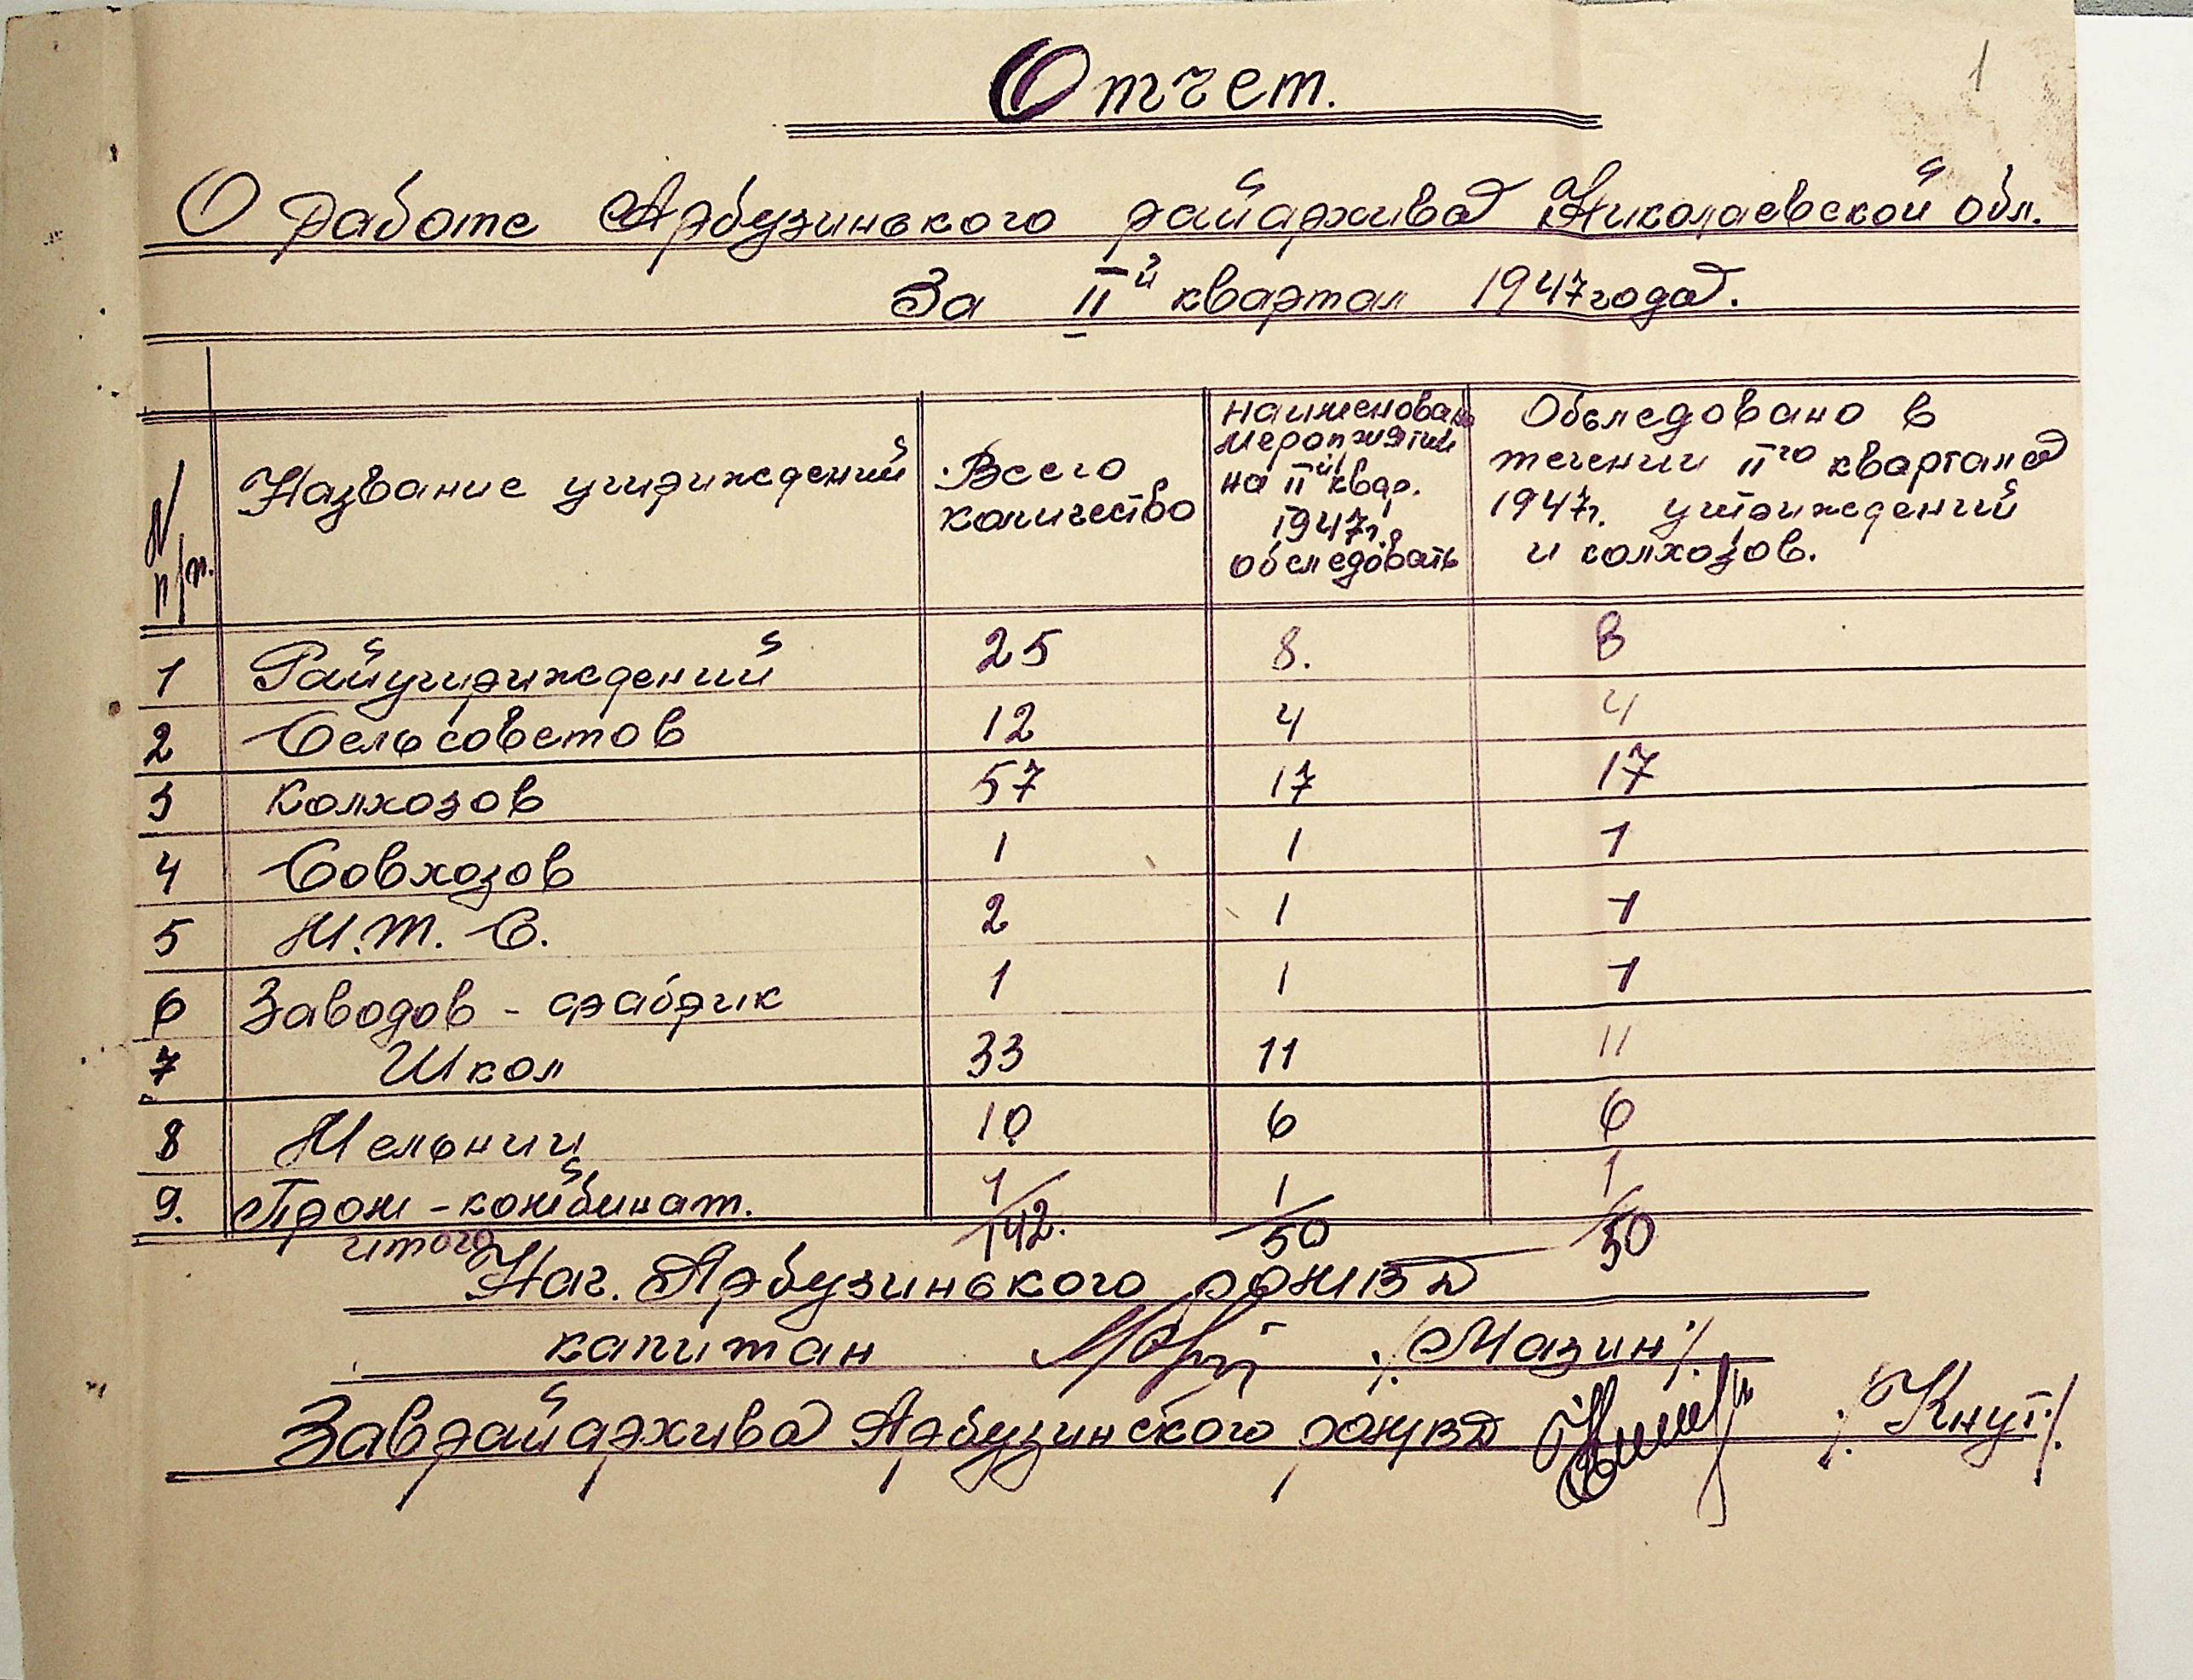 1
Отчет.
О работе Арбузинького райархива Николаевской обл.
За IIй квартал 1947 года.
N п/п. Название учириждений Всего количество наименован мероприятий на IIй квар. 1947г. обследовать Обследовано в течении IIго квартала 1947г. учириждений и колхозов.
1 Райучириждений 25 8. 8
2 Сельсоветов 12 4 4
3 Колхозов 57 17 17
4 Совхозов 1 1 1
5 М.Т.С. 2 1 1
6 Заводов - фабрик 1 1 1
7 Школ 33 11 11
8 Мельниц 10 6 6
9. Пром - комбинат. 1 1 1
итого 142. 50 50
Нач. Арбузинького РОМВД
капитан /Мазин/
Заврайархива Арбузинского РОМВД /Кнут/